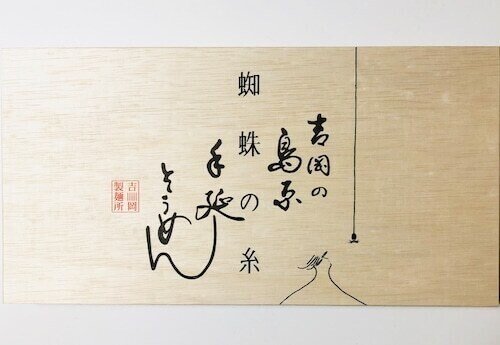 吉岡の
島原
蜘蛛の糸
手延
そうめん
吉岡
製麺所